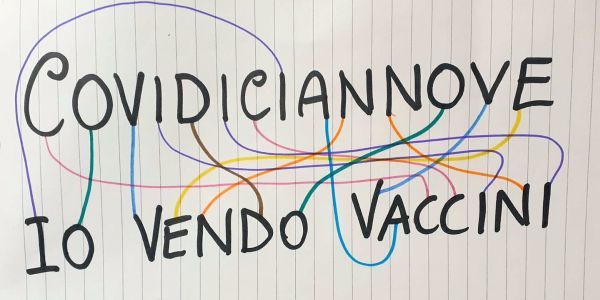 COVIDICIANNOVE
IO VENDO VACCINI